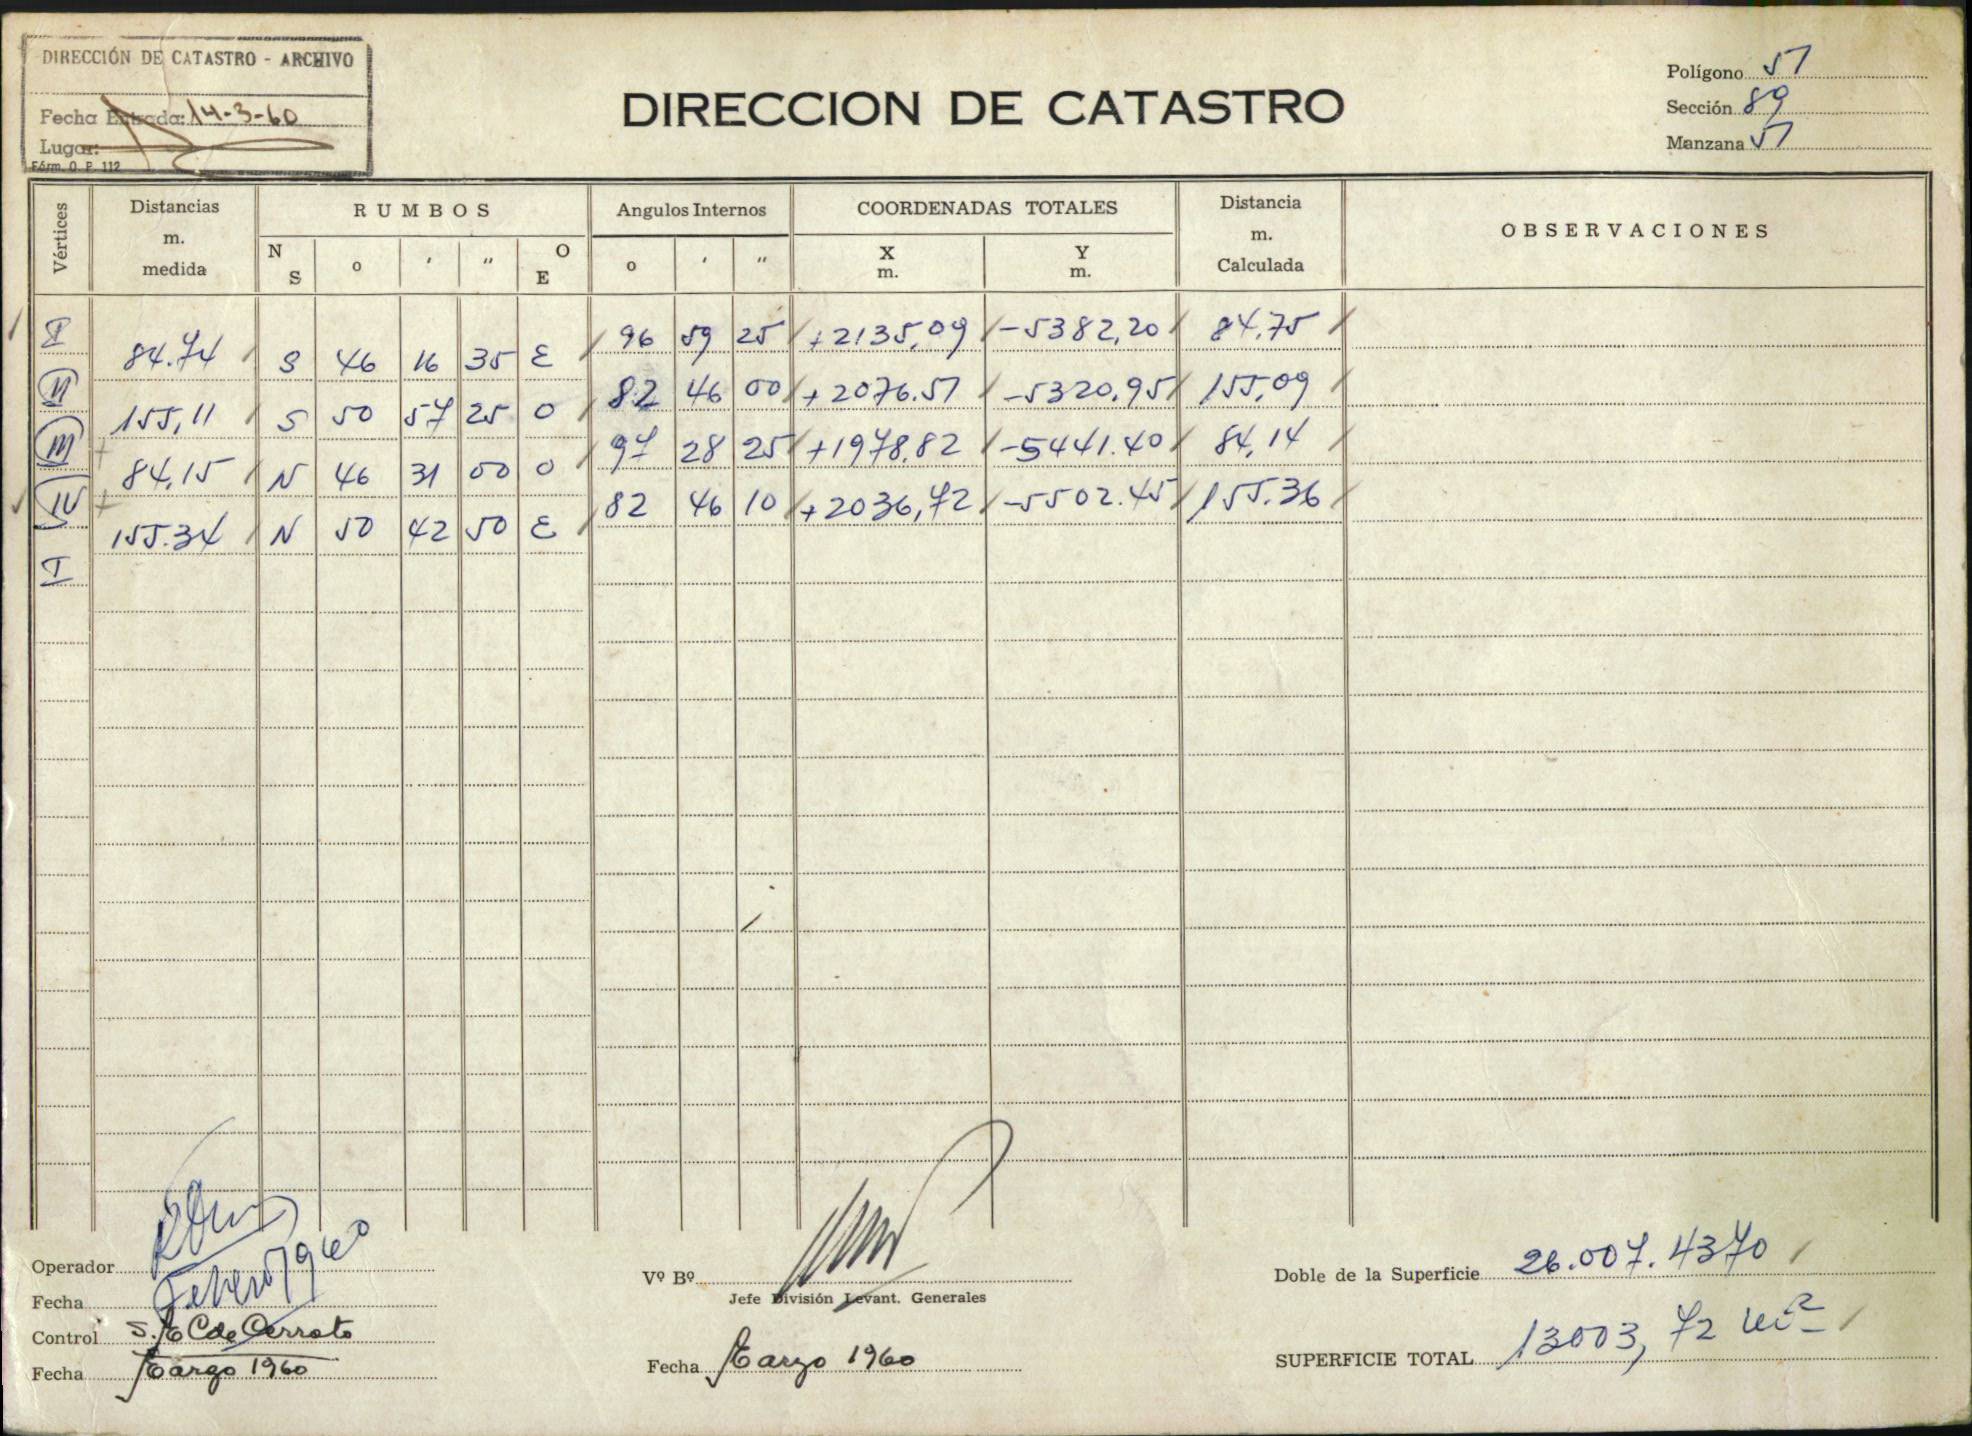 DIRECCIÓN DE CATASTRO - ARCHIVO
Fecha Entrada: 14-3-60
Lugar:
Fórm. O. P. 112
DIRECCION DE CATASTRO
Polígono 51
Sección 89
Manzana 51
Vértices
Distancias m. medida
RUMBOS
N S o ' " O E
Angulos Internos
o ' "
COORDENADAS TOTALES
X m. Y m.
Distancia m. Calculada
OBSERVACIONES
I 96 59 25 +2135,09 -5382,20 84,75
84.74 S 46 16 35 E
II 82 46 00 +2076.51 -5320.95 155,09
155,11 S 50 57 25 O
III 97 28 25 +1978.82 -5441.40 84,14
84,15 N 46 31 00 O
IV 82 46 10 +2036,72 -5502.45 155.36
155.34 N 50 42 50 E
I
Operador
Fecha Febrero 1960
Control S. E C de Cerrato
Fecha Marzo 1960
Vº Bº
Jefe División Levant. Generales
Fecha Marzo 1960
Doble de la Superficie 26.007.4370
SUPERFICIE TOTAL 13003,72 m²